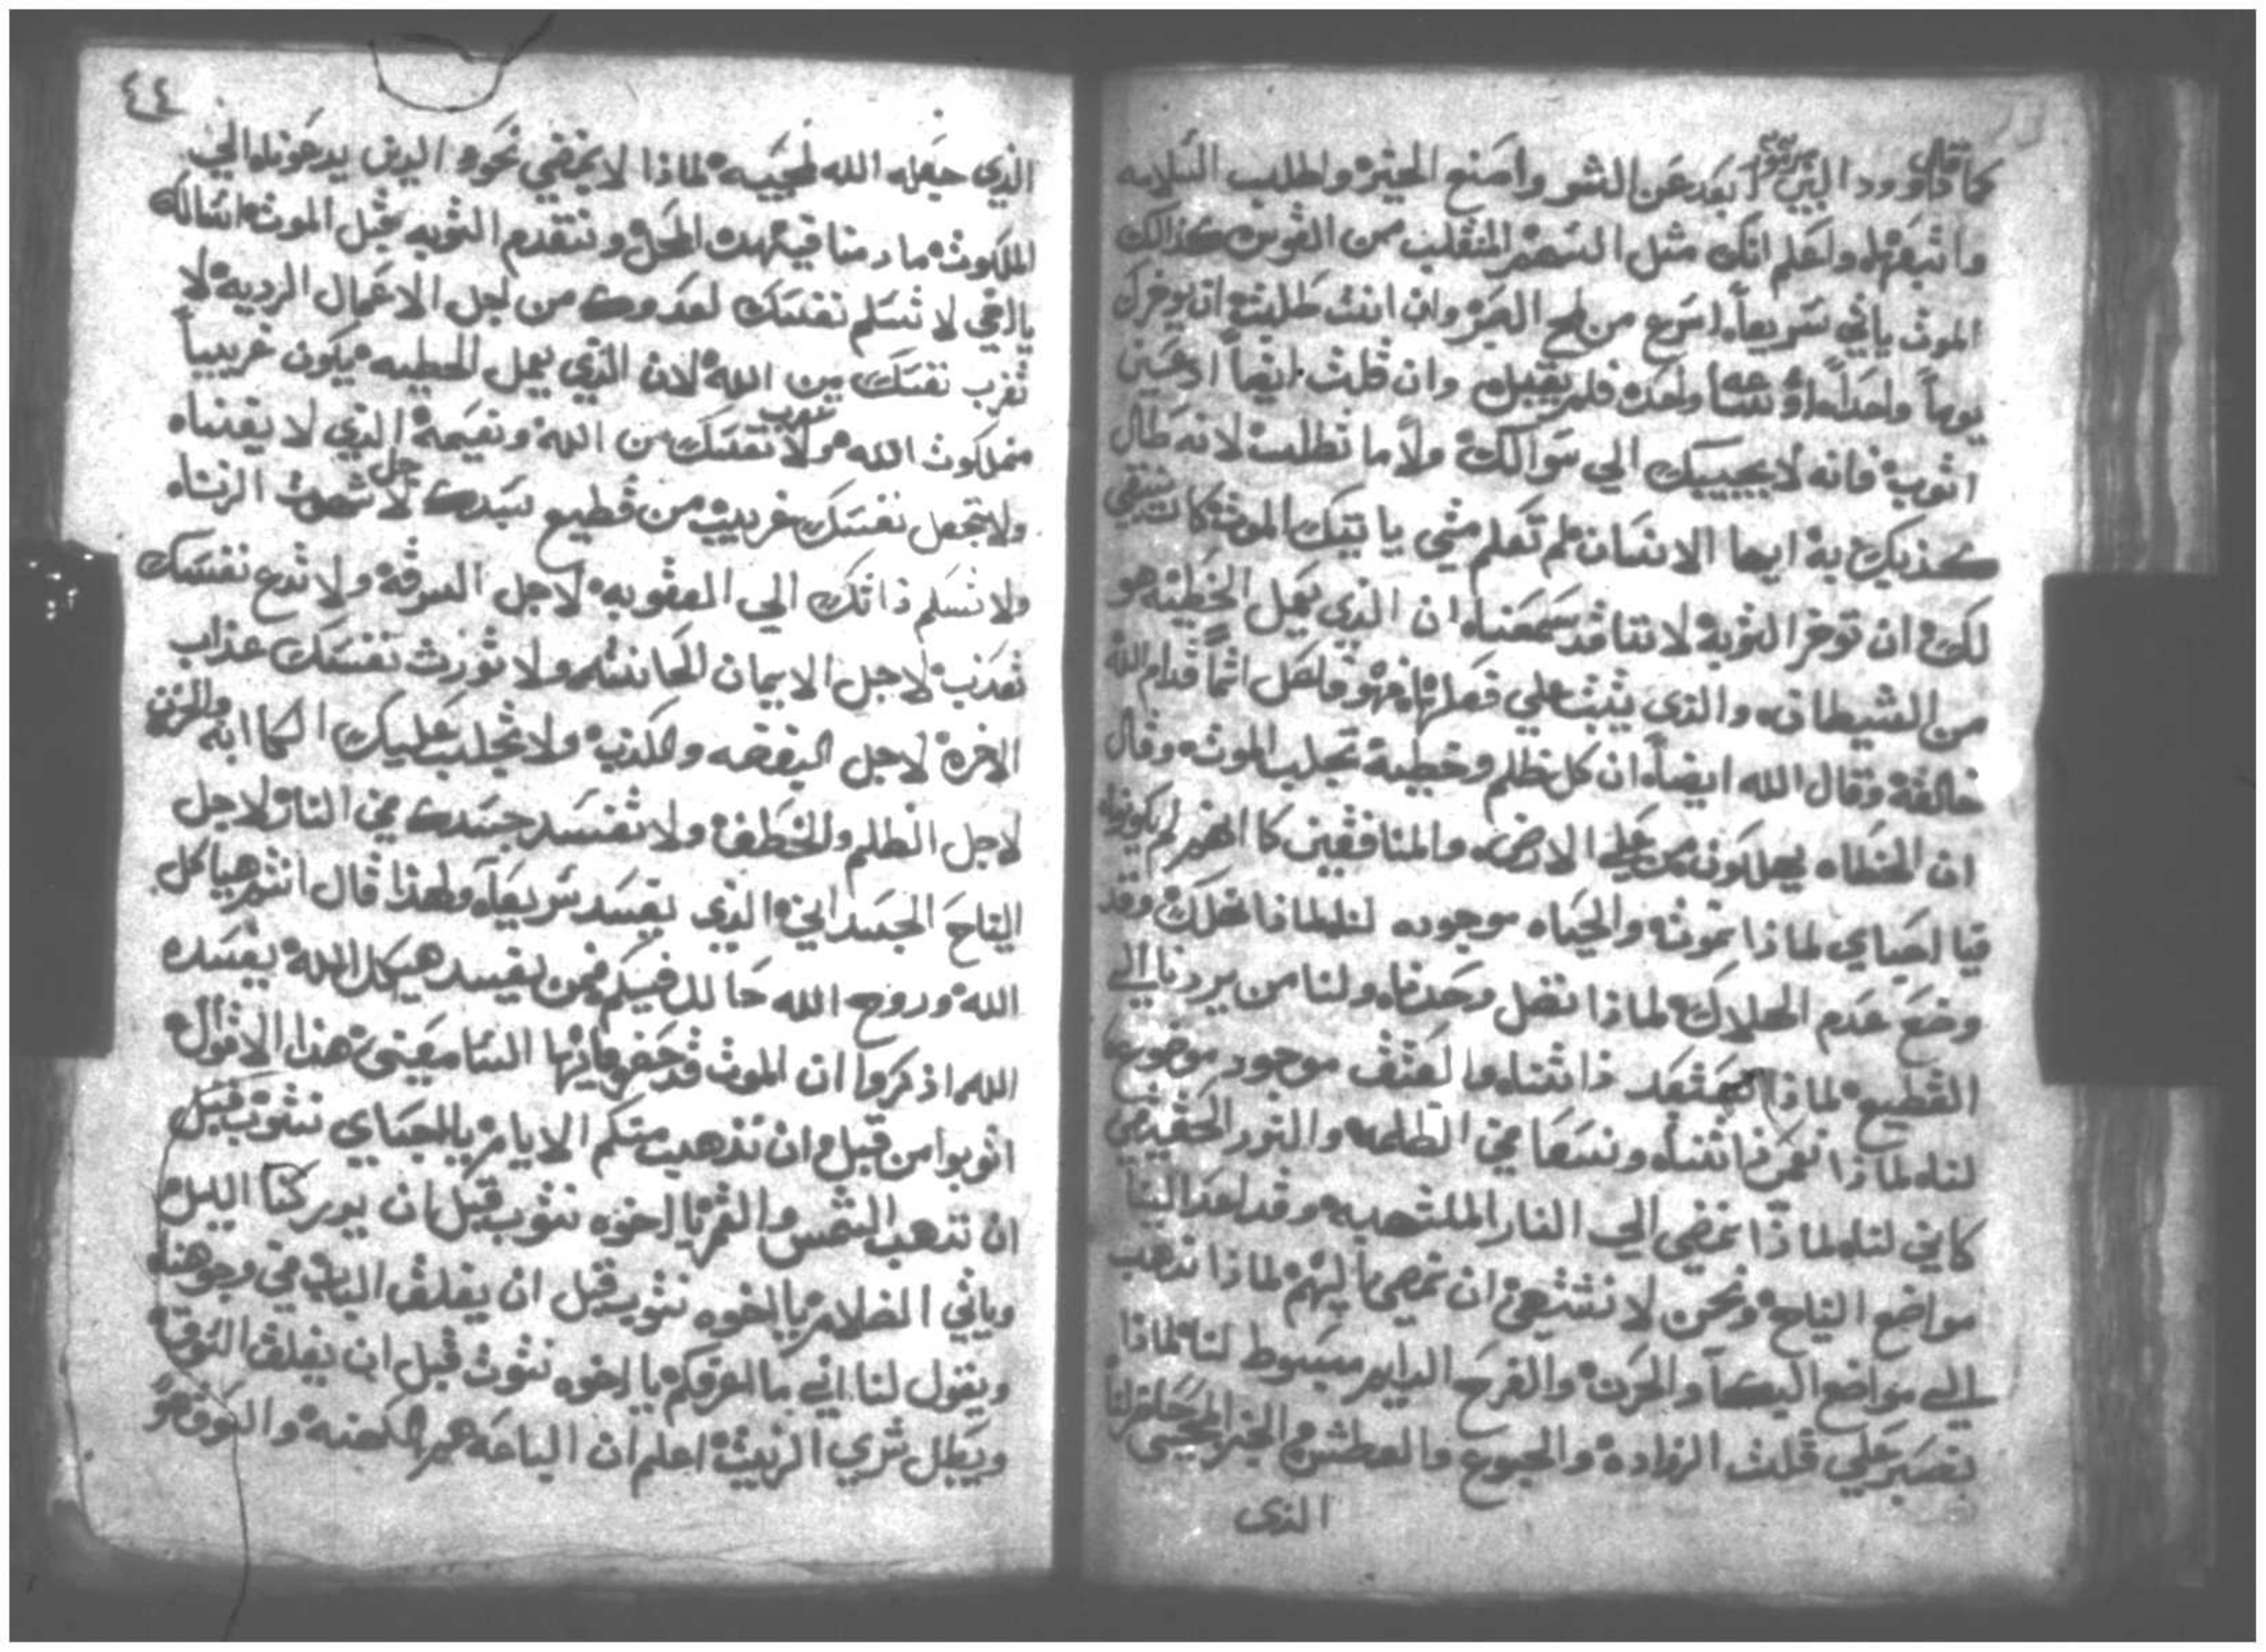 كما قال داوود النبي ابعد عن الشر واصنع الخير واطلب السلامه
واتبعها واعلم انك مثل السهم المنقلب من القوس كذالك
الموت ياتي سريعاً اسرع من لمح البصر وان انت طلبت ان يوخرك
يوماً واحداً او ساعه واحده فلم يقبل وان قلت ايضاً ادعني
اتوب فانه لا يجيبك الي سوالك ولا ما تطلب لانه طال
كذبك به ايها الانسان لم تعلم متي ياتيك الموت كما تشتهي
لك ان توخر التوبه لاننا قد سمعنا ان الذي يعمل الخطيه هو
من الشيطان والذي يثبت علي فعلها فهو فاعل اثماً قدام الله
خالقه وقال الله ايضاً ان كل ظلم وخطية تجلب الموت وقال
ان الخطاه يهلكون من علي الارض والمنافقين كانهم لم يكونوا
فيا احباي لماذا نموت والحياه موجوده لنا لماذا نهلك وقد
وضع عدم الهلاك لماذا نضل وحدنا ولنا من يردنا الي
القطيع لماذا ذاتنا والعتق موجود موضوع
لنا لماذا ذاتنا ونسعا في الظلمه والنور الحقيقي
كاين لنا لماذا نمضي الي النار الملتهبه وقد اعد لنا
مواضع النياح ونحن لا نشتهي ان نمضي اليهم لماذا نذهب
الي مواضع البكا والحزن والفرح الدايم مبسوط لنا لماذا
نصبر علي قلت الزواده والجوع والعطش والخبز المحيي حاضر لنا
الذي
٤٤
الذي جعله الله لمحبيه لماذا لا نمضي نحوه الذين يدعونا الي
الملكوت ما دمنا في هذه المحل ونتقدم التوبه قبل الموت اسالك
يا اخي لا تسلم نفسك لعدوك من اجل الاعمال الرديه لا
تغرب نفسك من الله لان الذي يعمل الخطيه يكون غريباً
من ملكوت الله ولا تغرب نفسك من الله ونعيمه الذي لا يفناه
ولا تجعل نفسك غريبة من قطيع سيدك لاجل شهوة الزناه
ولا تسلم ذاتك الي العقوبه لاجل السرقه ولا تدع نفسك
تعذب لاجل الايمان الحانثه ولا تورث نفسك عذاب
الاخره لاجل البغضه والكذب ولا تجلب عليك الكاابه والحزن
لاجل الظلم والخطف ولا تفسد جسدك في النار لاجل
النياح الجسداني الذي يفسد سريعاً ولهذا قال انتم هياكل
الله وروح الله حالل فيكم فمن يفسد هيكل الله يفسده
الله اذكروا ان الموت قد هذا الاقوال
اتوبوا من قبل ان تذهب منكم الايام يا احباي نتوب قبل
ان تذهب الشمس والقمر يا اخوه نتوب قبل ان يدركنا الليل
وياتي الظلام يا اخوه نتوب قبل ان يغلق الباب في وجوهنا
ويقول لنا اني ما اعرفكم يا اخوه نتوب قبل ان يغلق السوق
ويبطل شري الزيت اعلم ان الباعه هم الكهنه والسوق هو